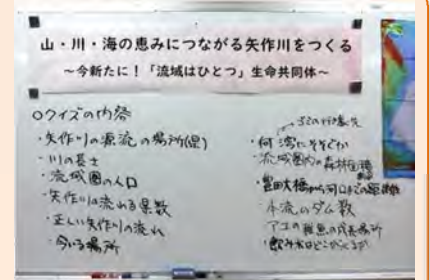 山・川・海の恵みにつながる矢作川をつくる
～今新たに！「流域はひとつ」生命共同体～
○クイズの内容
・矢作川の源流の場所(県)
・川の長さ
・流域圏の人口
・矢作川の流れる県数
・正しい矢作川の流れ
・今いる場所
・何湾にそそぐか
・流域圏内の森林面積
・豊田大橋から河口までの距離
・本流のダム数
アユの稚魚の成長場所
・飲み水はどこからくるか